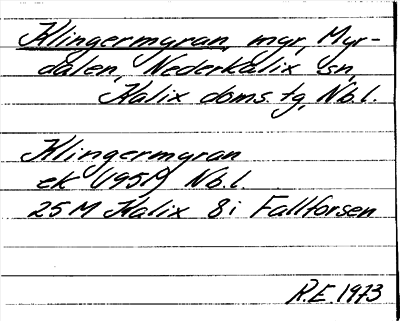 Klingermyran, myr, Myr-
dalen, Nederkalix sn,
Kalix doms. tg, Nb.l.
Klingermyran
ek (1951) Nb.l.
25 M Kalix 8i Fallforsen
R.E. 1973